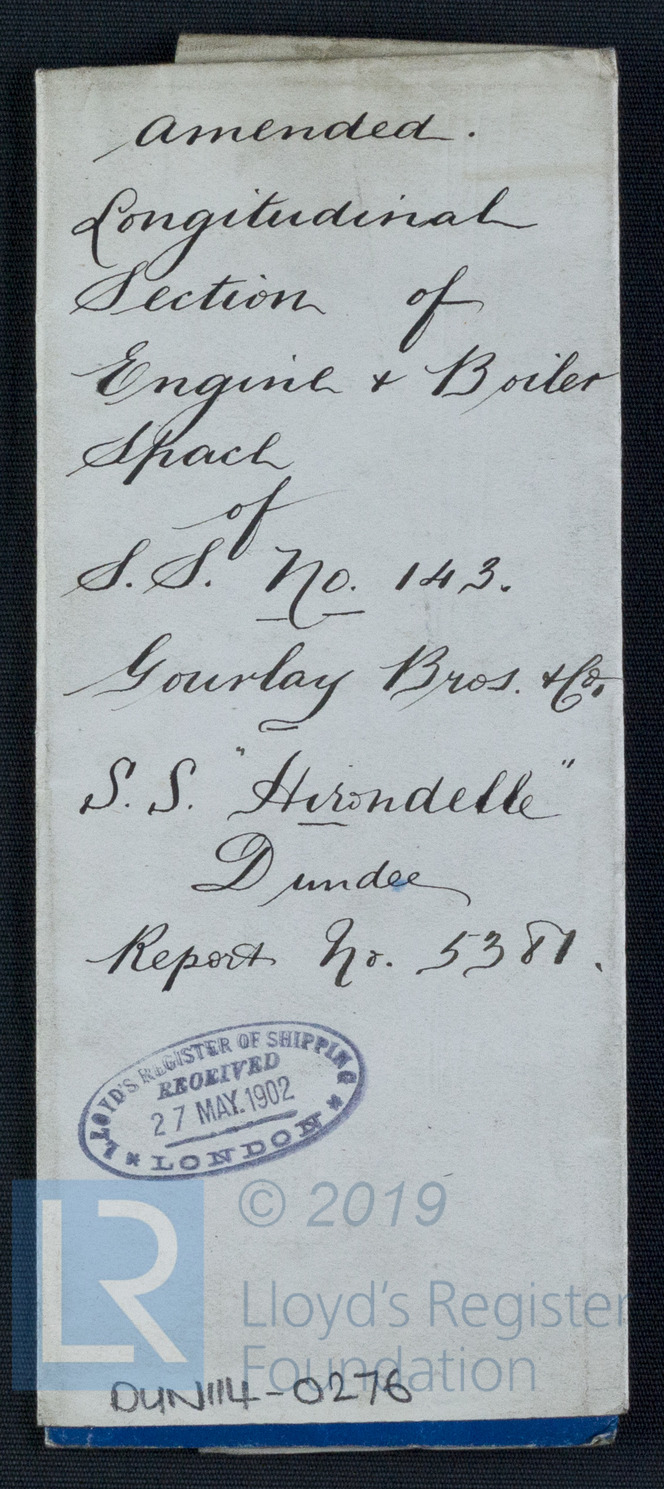 Amended.
Longitudinal
Section of
Engine & Boiler
Space
of
S.S. No. 143.
Gourlay Bros. & Co.
S.S. "Hirondelle"
Dundee
Report No. 5381.
LLOYD'S REGISTER OF SHIPPING
RECEIVED
27 MAY.1902
LONDON
© 2019
LR
Lloyd's Register
Foundation
DUN114-0276